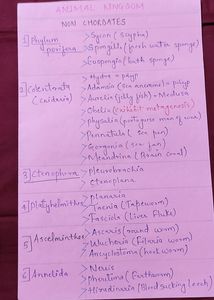 ANIMAL KINGDOM
NON CHORDATES
1] Phylum porifera > Sycon (scypha)
> Spongilla (fresh water sponge)
> Euspongia (bath sponge)
2] Coelentrata (cnidaria) > Hydra = polyp
> Adamsia (sea anemone) = polyp
> Aurelia (jelly fish) = Medusa
> Obelia (exibit metagenesis)
> physalia (portuguese man of war)
> Pennatula (sea pen)
> Gorgonia (sea fan)
> Meandrina (Brain coral)
3] Ctenophora > Pleurobrachia
> Ctenoplana
4] Platyhelminthes > planaria
> Taenia (Tapeworm)
> Fasciola (Liver Fluke)
5] Ascelminthes > Ascaris (round worm)
> Wuchraria (Filaria worm)
> Ancyclostoma (hook worm)
6] Annelida > Nereis
> pheretima (Earthworm)
> Hirudinaria (Blood sucking leech)